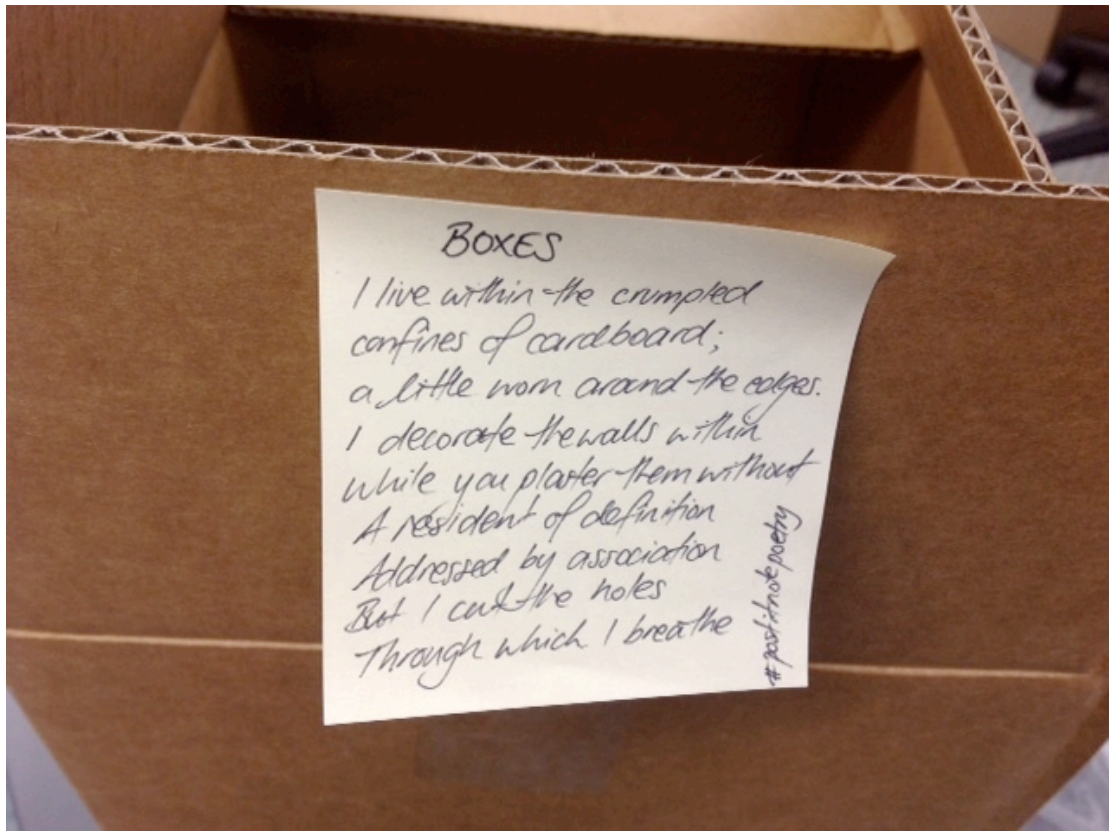 BOXES
I live within the crumpled
confines of cardboard;
a little worn around the edges.
I decorate the walls within
while you plaster them without
A resident of definition
Addressed by association
But I cut the holes
Through which I breathe
#postitnotepoetry